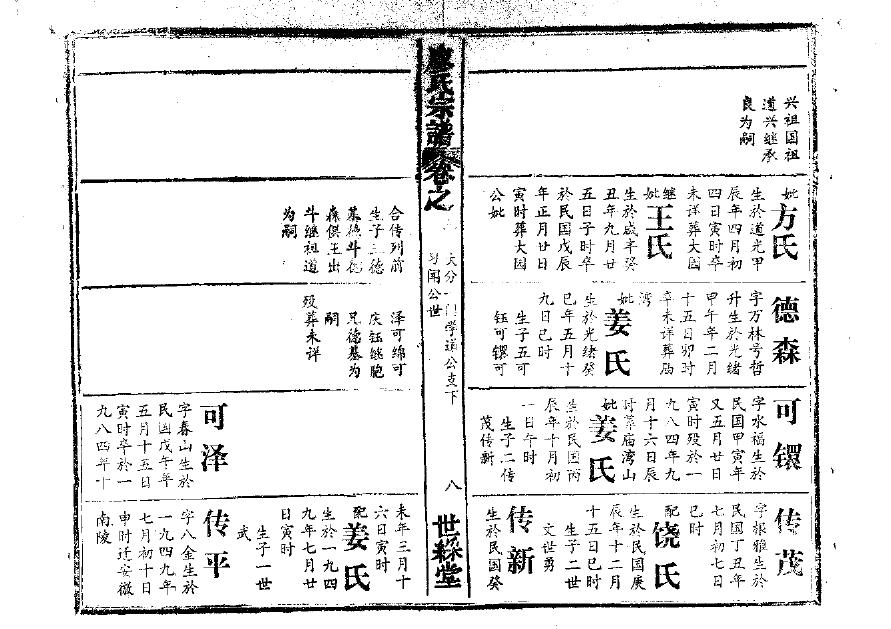 兴祖国祖
道兴继承
良为嗣
妣方氏
生於道光甲
辰年四月初
四日寅时卒
未详葬大园
继妣王氏
生於咸丰癸
丑年九月廿
五日子时卒
於民国戊辰
年正月廿日
寅时葬大园
公妣
德森
字万林号哲
升生於光绪
甲午年二月
十五日卯时
卒未详葬庙
湾
妣姜氏
生於光绪癸
巳年五月十
九日巳时
生子五可
钰可镙可
可镙
字水福生於
民国甲寅年
又五月廿日
寅时殁於一
九八四年九
月十六日辰
时葬庙湾山
妣姜氏
生於民国丙
辰年十月初
一日午时
生子二传
茂传新
传茂
字根雅生於
民国丁丑年
七月初七日
巳时
配饶氏
生於民国庚
辰年十二月
十五日巳时
生子二世
文世勇
传新
生於民国癸
廖氏宗谱
卷之
大分一门学道公支下
习闻公世
八
世綵堂
合传列前
生子三德
墓德斗德
森俱王出
斗继祖道
为嗣
泽可绵可
庆钰继胞
兄德墓为
嗣
殁葬未详
可泽
字春山生於
民国戊午年
五月十五日
寅时卒於一
九八四年十
未年三月十
六日寅时
配姜氏
生於一九四
九年七月廿
日寅时
生子一世
武
传平
字八金生於
一九四九年
七月初十日
申时迁安徽
南陵